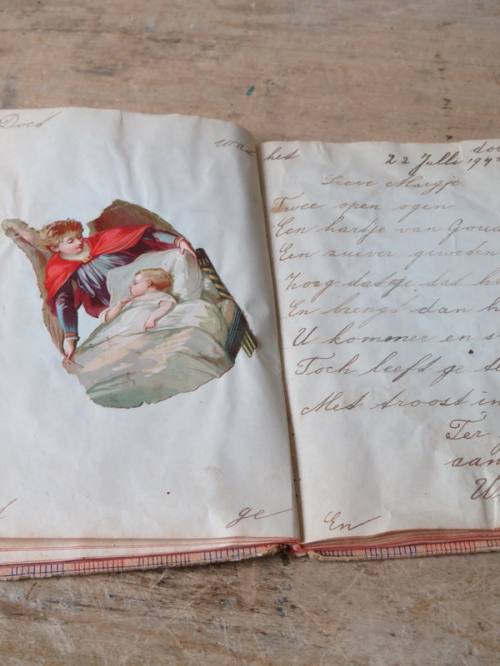 Doet
was
ge
het
22 Julli 194
Lieve Margje
Twee open ogen
Een hartje van Goud
Een zuiver geweten
Zorg dat je dat
En brengt dan
U kommer en
Toch leeft ge
Met troost in
Ter
aan
U
En